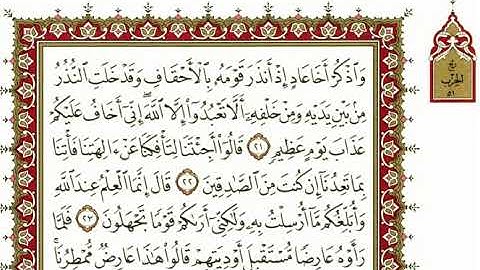 وَاذْكُرْ أَخَا عَادٍ إِذْ أَنذَرَ قَوْمَهُ بِالْأَحْقَافِ وَقَدْ خَلَتِ النُّذُرُ
مِنۢ بَيْنِ يَدَيْهِ وَمِنْ خَلْفِهِ أَلَّا تَعْبُدُوا إِلَّا اللَّهَ إِنِّي أَخَافُ عَلَيْكُمْ
عَذَابَ يَوْمٍ عَظِيمٍ ٢١ قَالُوا أَجِئْتَنَا لِتَأْفِكَنَا عَنْ ءَالِهَتِنَا فَأْتِنَا
بِمَا تَعِدُنَا إِن كُنتَ مِنَ الصَّادِقِينَ ٢٢ قَالَ إِنَّمَا الْعِلْمُ عِندَ اللَّهِ
وَأُبَلِّغُكُم مَّا أُرْسِلْتُ بِهِ وَلَٰكِنِّي أَرَىٰكُمْ قَوْمًا تَجْهَلُونَ ٢٣ فَلَمَّا
رَأَوْهُ عَارِضًا مُّسْتَقْبِلَ أَوْدِيَتِهِمْ قَالُوا هَٰذَا عَارِضٌ مُّمْطِرُنَا
ربع
الحزب
٥١